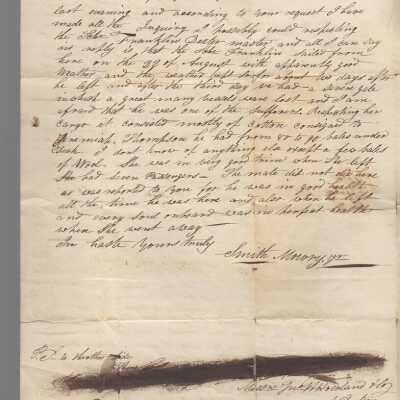 last evening and according to your request I have
made all the Inquiry I possibly could respecting
the Schr Franklin Dexter master and all I can say
in reply is, that the Schr Franklin Sailed from
here on the 29 of August with apparently good
Weather, and the weather lasted so for about two days after
he left and after the third day we had a severe gale
in which a great many vessels were lost and I am
afraid that he was one of the sufferers. Respecting her
Cargo it consisted mostly of Cotton consigned to
Jeremiah Thompson he had from to 90 bales under
Deck I dont know of anything else except a few bales
of Wool. She was in very good trim when She left
She had seven Passengers - The mate did not die here
as was reported to you for he was in good health
all the time he was here and also when he left
and every soul onboard was in perfect health
when She went away -
In haste Yours truly
Smith Mowry, Jr
P.S. to Brother
Messrs